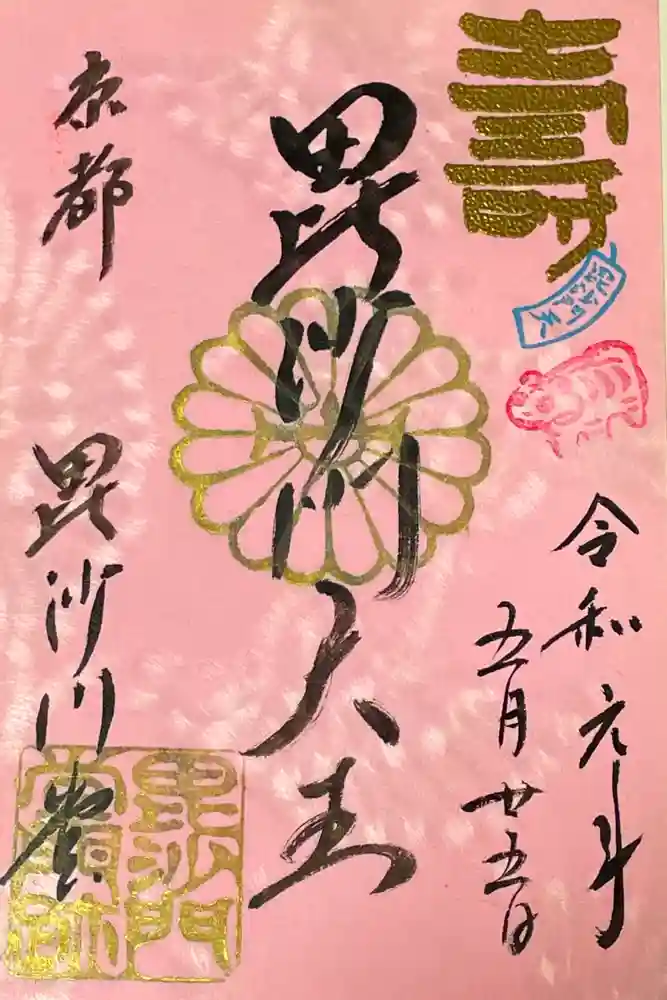 令和元年
五月廿五日
毘沙門天王
京都
毘沙門堂
毘沙門